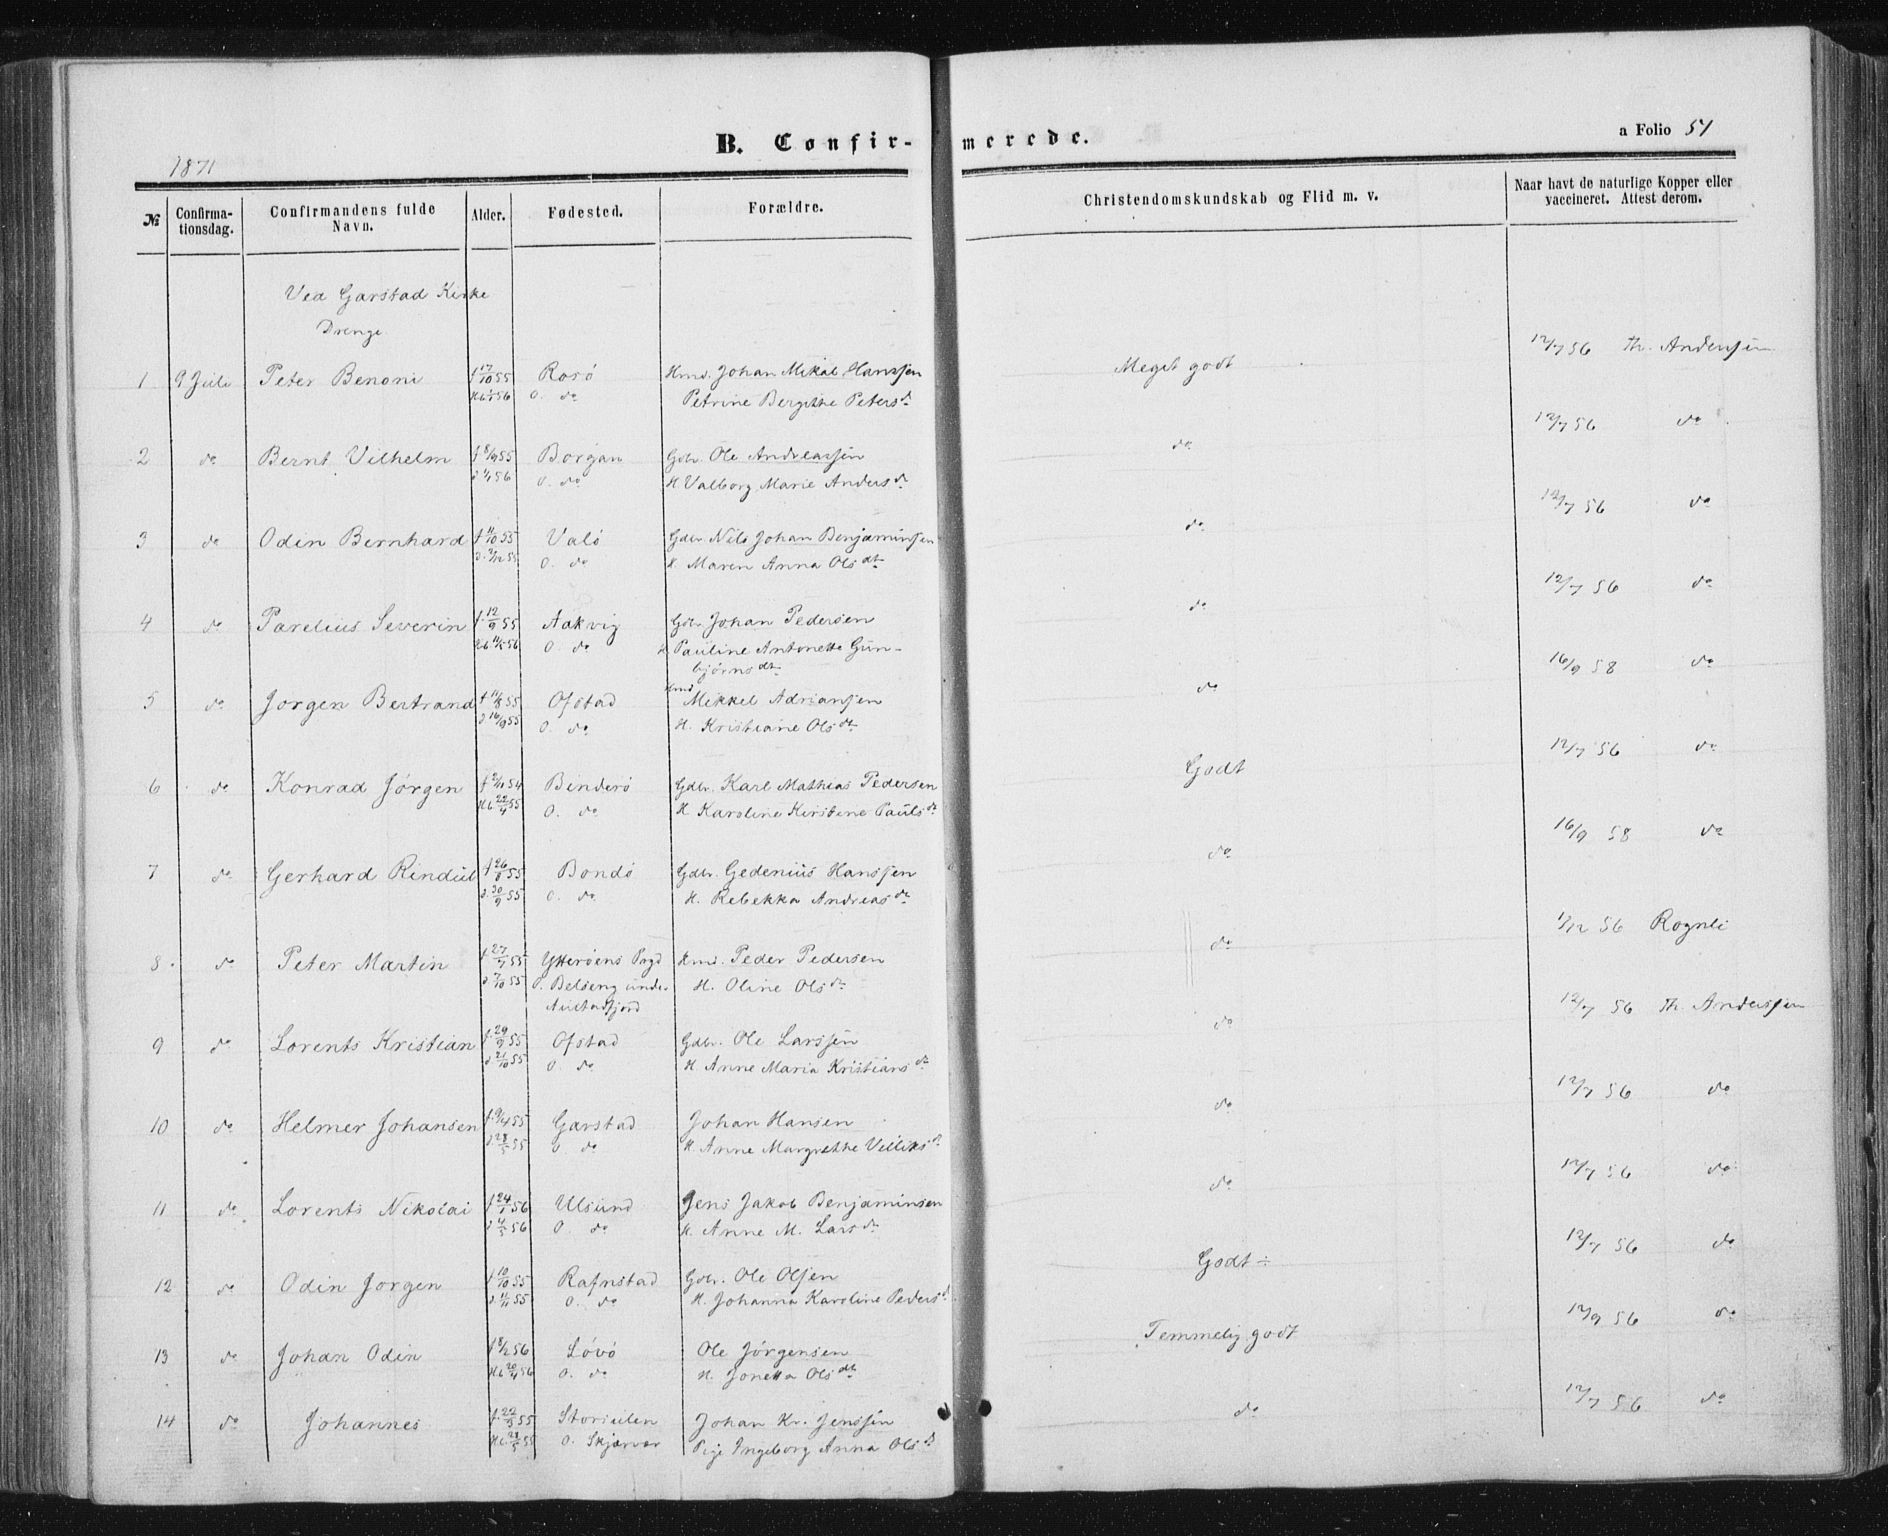 1871
B. Confir-merede.
a Folio 51
№ Confirma-tionsdag. Confirmandens fulde Navn. Alder. Fødested. Forældre. Christendomskundskab og Flid m. v. Naar havt de naturlige Kopper eller vaccineret. Attest derom.
Ved Garstad Kirke
Drenge
1 9 Juli Peter Benoni f 17/10 55 Rorö Hmd. Johan Mikal Hanssen Meget godt 12/7 56 Th. Anderssen
56 O. do Petrine Bergithe Petersdr
2 do Bernt Vilhelm f 8/9 55 Borgan Gdbr. Ole Andreassen do 12/7 56 do
d 1/1 56 O. do H. Valborg Marie Andersdr
3 do Odin Bernhard f 11/10 55 Valö Gdbr. Nils Johan Benjaminsen do 12/7 56 do
55 O. do H. Maren Anna Olsdtr
4 do Parelius Severin f. 12/9 55 Aakvig Gdbr Johan Pedersen do 12/7 56 do
56 O. do H. Pauline Antonette Gun-
bjørnsdtr
5 do Jørgen Bertrand f 11/8 55 Ofstad Hmd Mikkel Adriansen do 16/9 58 do
d 16/9 55 O. do H. Kristiane Olsdtr
6 do Konrad Jørgen 54 Binderö Gdbr. Karl Mathias Pedersen Godt 12/7 56 do
Hd 22/4 55 O. do H. Karoline Kirstene Paulsdr
7 do Gerhard Rindul f 26/8 55 Bondö Gdbr. Gedenius Hanssen do 16/9 58 do
d. 30/9 55 O. do H. Rebekka Andreasdr
8. do Peter Martin f 27/7 55 Ytterøens Prgd Hmd. Peder Pedersen do 1/12 56 Rognli
d 7/10 55 O. Belseng under H. Oline Olsdr
Aulstadfjord
9 do Lorents Kristian f. 29/9 55 Ofstad Gdbr. Ole Larssen do 12/7 56 Th. Anderssen
d 21/10 55 O. do H. Anne Maria Kristiansdr
10 do Helmer Johansen f. 9/4 55 Garstad Johan Hansen do 12/7 56 do
d 28/5 55 O do H. Anne Margrethe Villiksdr
11 do Lorents Nikolai f 24/1 56 Ulsund Jens Jakob Benjaminsen do 12/7 56 do
d 4/5 56 O. do H. Anne M. Larsdr
12 do Odin Jørgen f 10/10 55 Rafnstad Gdbr. Ole Olsen Godt ÷ 12/7 56 do
d. 11/11 55 O. do H. Johanna Karoline Pedersd
13 do Johan Odin f 8/2 56 Lövö Ole Jørgensen Temmelig godt 12/9 56 do
Hd 20/4 56 O. do H. Jonetta Olsdtr
14 do Johannes f. 22/3 55 Storsulen Johan Kr. Jenssen do 12/7 56 do
Hd. 28/5 55 O. Skjærvær Pige Ingeborg Anna Olsdr